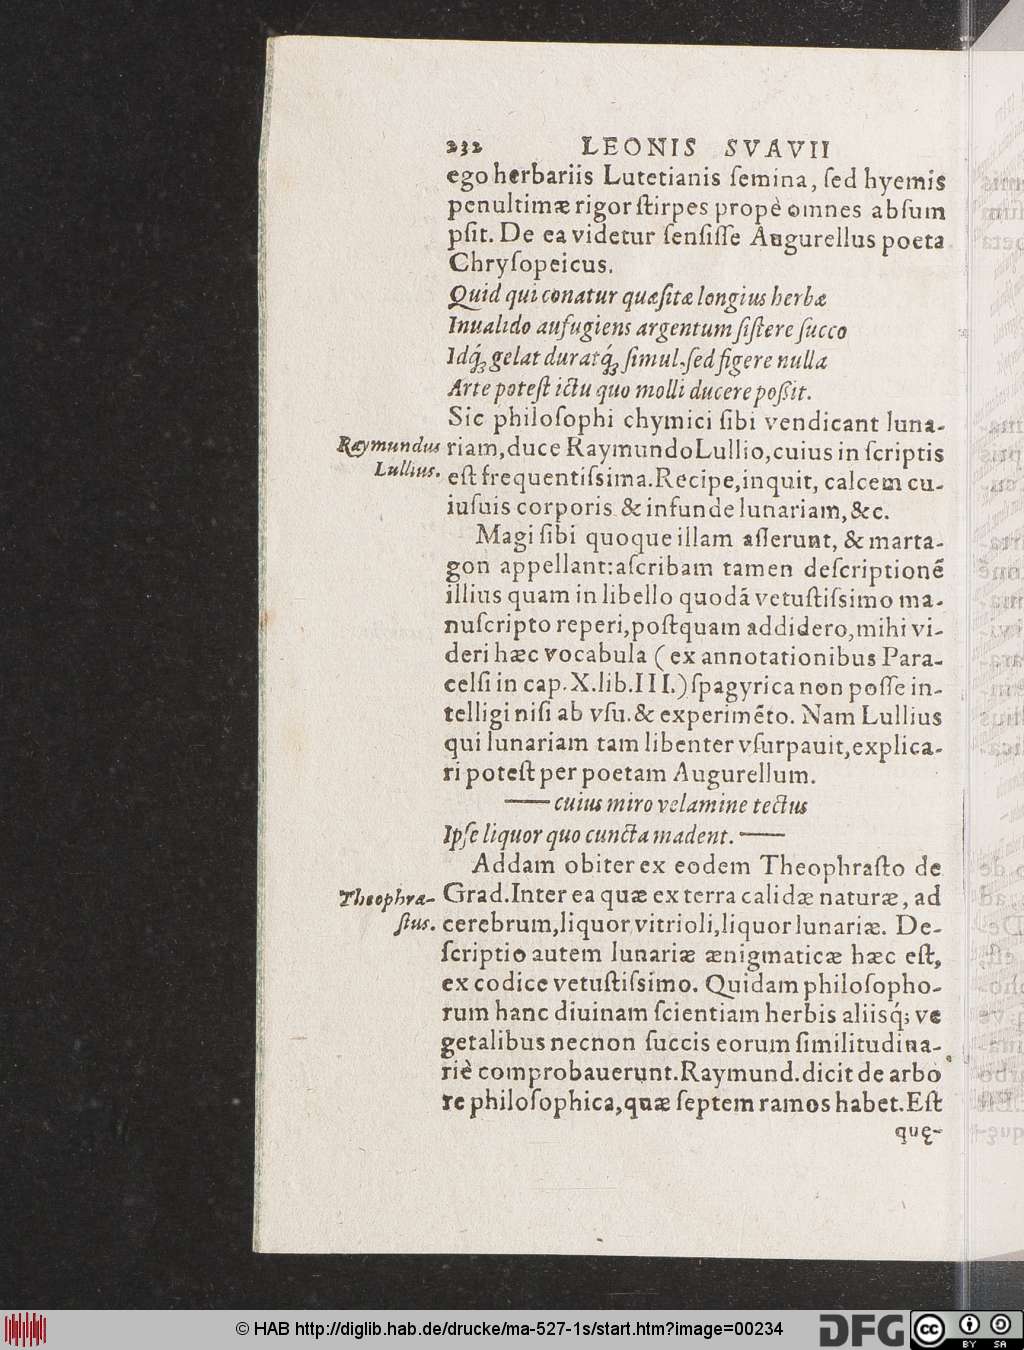 232 LEONIS SVAVII
ego herbariis Lutetianis ſemina, ſed hyemis
penultimæ rigor ſtirpes propè omnes abſum
pſit. De ea videtur ſenſiſſe Augurellus poeta
Chryſopeicus.
Quid qui conatur quæſitæ longius herbæ
Inualido aufugiens argentum ſiſtere ſucco
Idq́ꝫ gelat duratq́ꝫ ſimul, ſed figere nulla
Arte poteſt ictu quo molli ducere poſſit.
Sic philoſophi chymici ſibi vendicant luna-
Raymundus
Lullius.
riam, duce Raymundo Lullio, cuius in ſcriptis
eſt frequentiſsima. Recipe, inquit, calcem cu-
iuſuis corporis & infunde lunariam, &c.
Magi ſibi quoque illam aſſerunt, & marta-
gon appellant: aſcribam tamen deſcriptionẽ
illius quam in libello quodã vetuſtiſsimo ma-
nuſcripto reperi, poſtquam addidero, mihi vi-
deri hæc vocabula (ex annotationibus Para-
celſi in cap. X. lib. III.) ſpagyrica non poſſe in-
telligi niſi ab vſu. & experimẽto. Nam Lullius
qui lunariam tam libenter vſurpauit, explica-
ri poteſt per poetam Augurellum.
—— cuius miro velamine tectus
Ipſe liquor quo cuncta madent. ——
Addam obiter ex eodem Theophraſto de
Theophra-
ſtus.
Grad. Inter ea quæ ex terra calidæ naturæ, ad
cerebrum, liquor vitrioli, liquor lunariæ. De-
ſcriptio autem lunariæ ænigmaticæ hæc eſt,
ex codice vetuſtiſsimo. Quidam philoſopho-
rum hanc diuinam ſcientiam herbis aliisq́; ve
getalibus necnon ſuccis eorum ſimilitudina-
riè comprobauerunt. Raymund. dicit de arbo
re philoſophica, quæ ſeptem ramos habet. Eſt
quę-
© HAB http://diglib.hab.de/drucke/ma-527-1s/start.htm?image=00234
DFG
cc BY SA